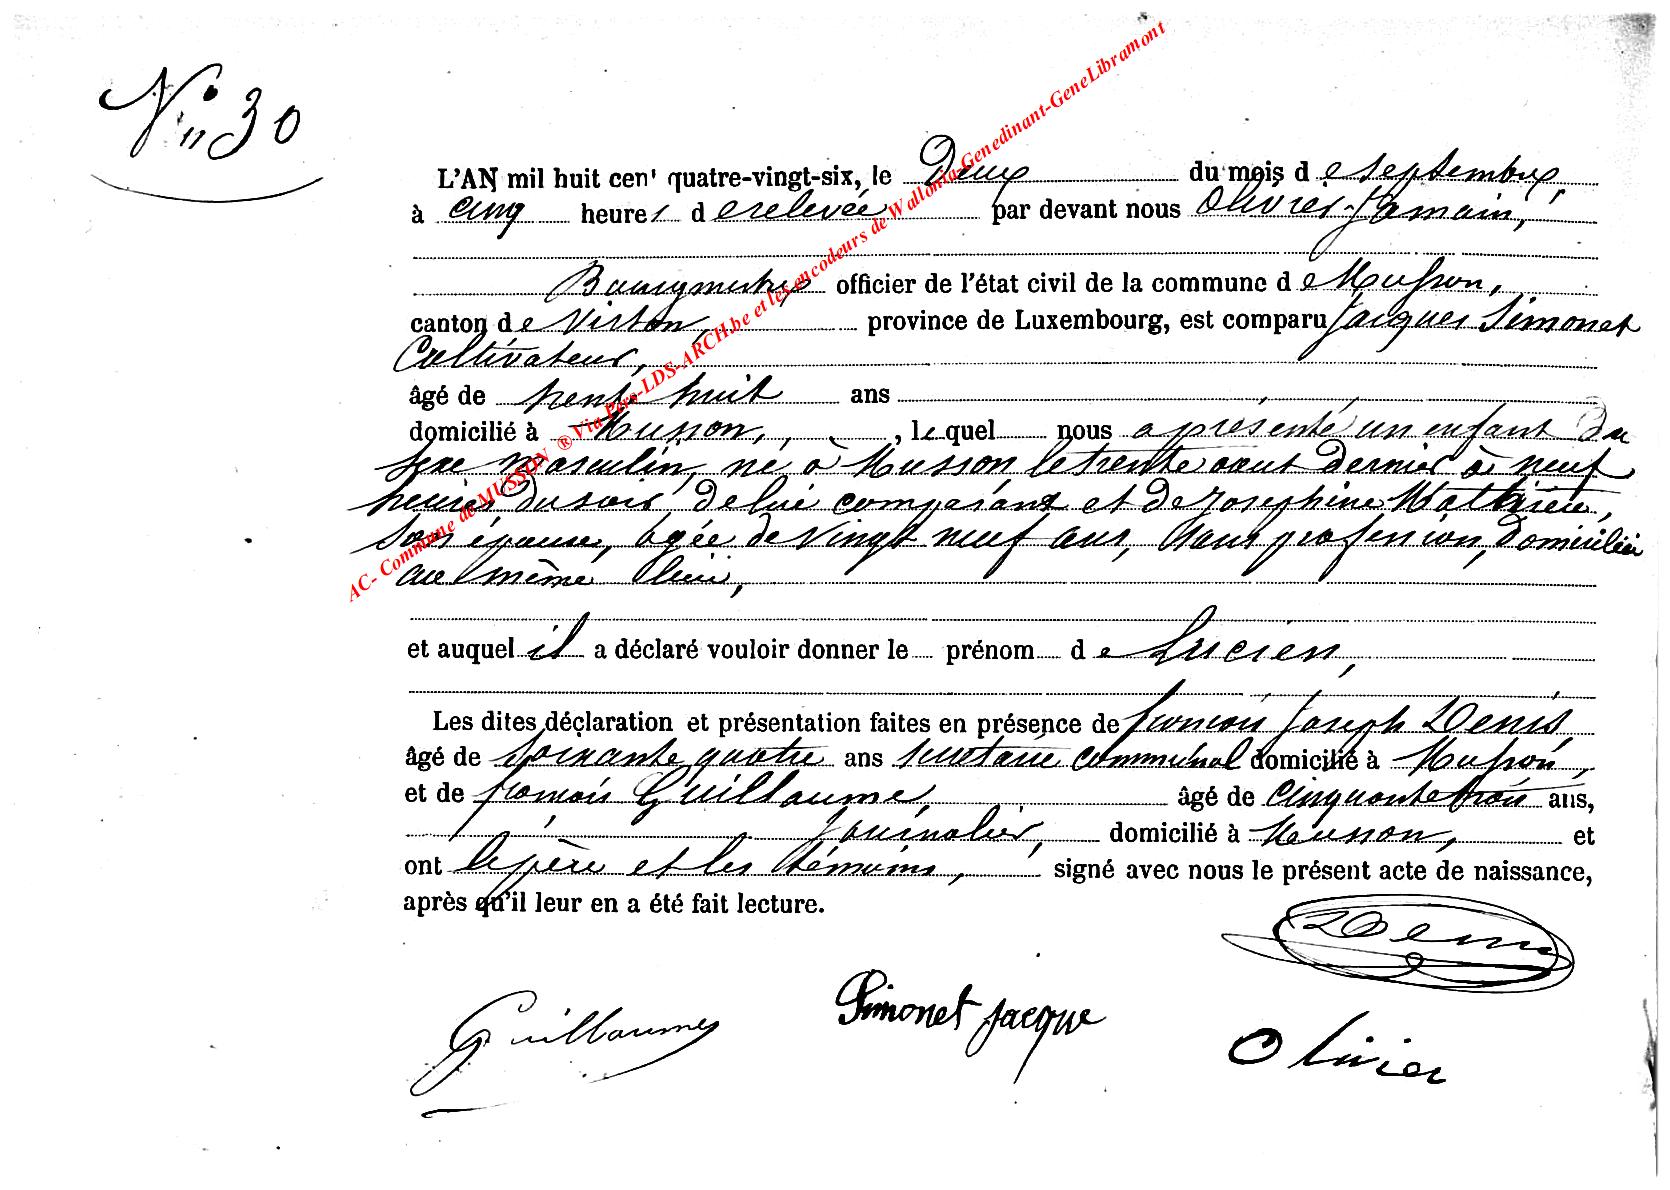 N° 30
L'AN mil huit cent quatre-vingt-six, le Deux du mois de septembre,
à cinq heures de relevée par devant nous Olivier Jamain,
Bourgmestre officier de l'état civil de la commune de Musson,
canton de Virton, province de Luxembourg, est comparu Jacques Simonet
Cultivateur,
âgé de trente huit ans
domicilié à Musson, , lequel nous a présenté un enfant du
sexe masculin, né à Musson le trente aout dernier à neuf
heures du soir, de lui comparant et de Josephine Mathieu,
son épouse, agée de vingt neuf ans, sans profession, domiciliée
au même lieu,
et auquel il a déclaré vouloir donner le prénom de Lucien,
Les dites déclaration et présentation faites en présence de françois Joseph Denis
âgé de soixante quatre ans secrétaire communal domicilié à Musson,
et de françois Guillaume, âgé de cinquante trois ans,
journalier, domicilié à Musson, et
ont le père et les témoins, signé avec nous le présent acte de naissance,
après qu'il leur en a été fait lecture.
Denis
Guillaume
Simonet Jacque
Olivier
AC- Commune de MUSSON ® Via Pers-LDS-ARCH.be et les encodeurs de Wallonia-Genedinant-GeneLibramont